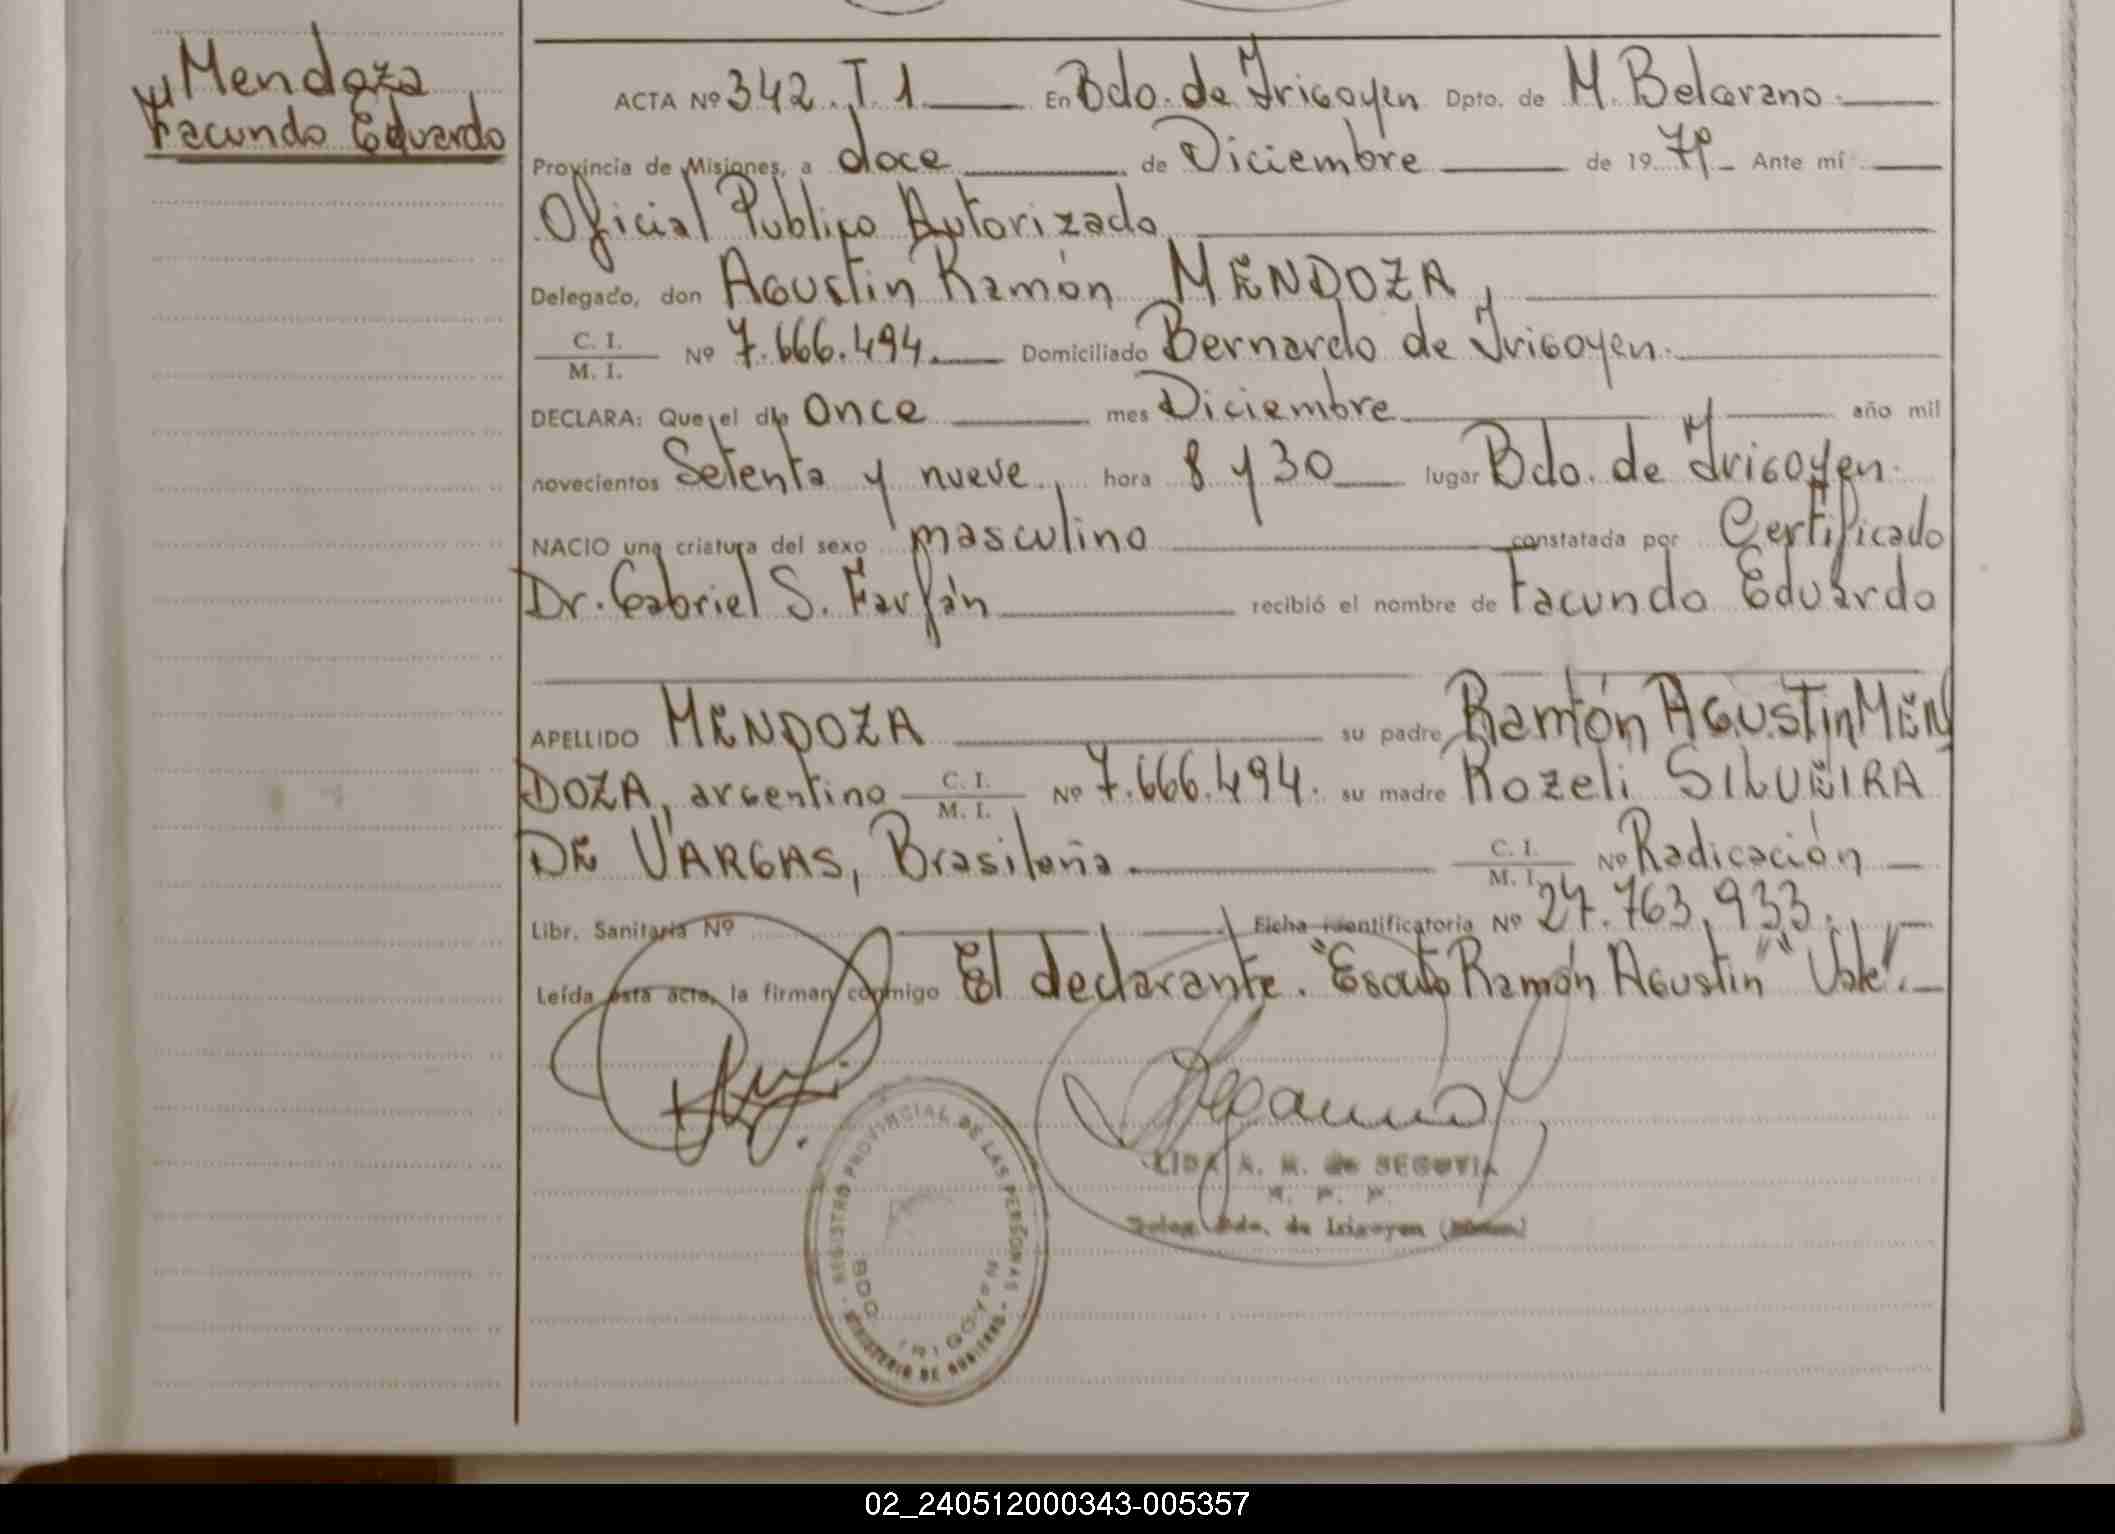 Mendoza
Facundo Eduardo
ACTA Nº 342. T 1 En Bdo. de Irigoyen Dpto. de M. Belgrano
Provincia de Misiones, a doce de Diciembre de 19 79 Ante mí
Oficial Publico Autorizado
Delegado, don Agustin Ramón MENDOZA,
C. I.
M. I. Nº 7.666.494. Domiciliado Bernardo de Irigoyen.
DECLARA: Que el día Once mes Diciembre año mil
novecientos Setenta y nueve, hora 8 y 30 lugar Bdo. de Irigoyen.
NACIO una criatura del sexo masculino constatada por Certificado
Dr. Gabriel S. Farfán recibió el nombre de Facundo Eduardo
APELLIDO MENDOZA su padre Ramón Agustin MEN
DOZA, argentino C. I. M. I. Nº 7.666.494. su madre Rozeli SILVEIRA
DE VARGAS, Brasileña C. I. M. I. Nº Radicación
Libr. Sanitaria Nº Ficha identificatoria Nº 27.763.933.
Leída esta acta, la firman conmigo El declarante. "Ramón Agustin" "Vale".
LIDA A. M. de SEGOVIA
Deleg. Bdo. de Irigoyen
REGISTRO PROVINCIAL DE LAS PERSONAS
BDO. IRIGOYEN
MINISTERIO DE GOBIERNO
02_240512000343-005357